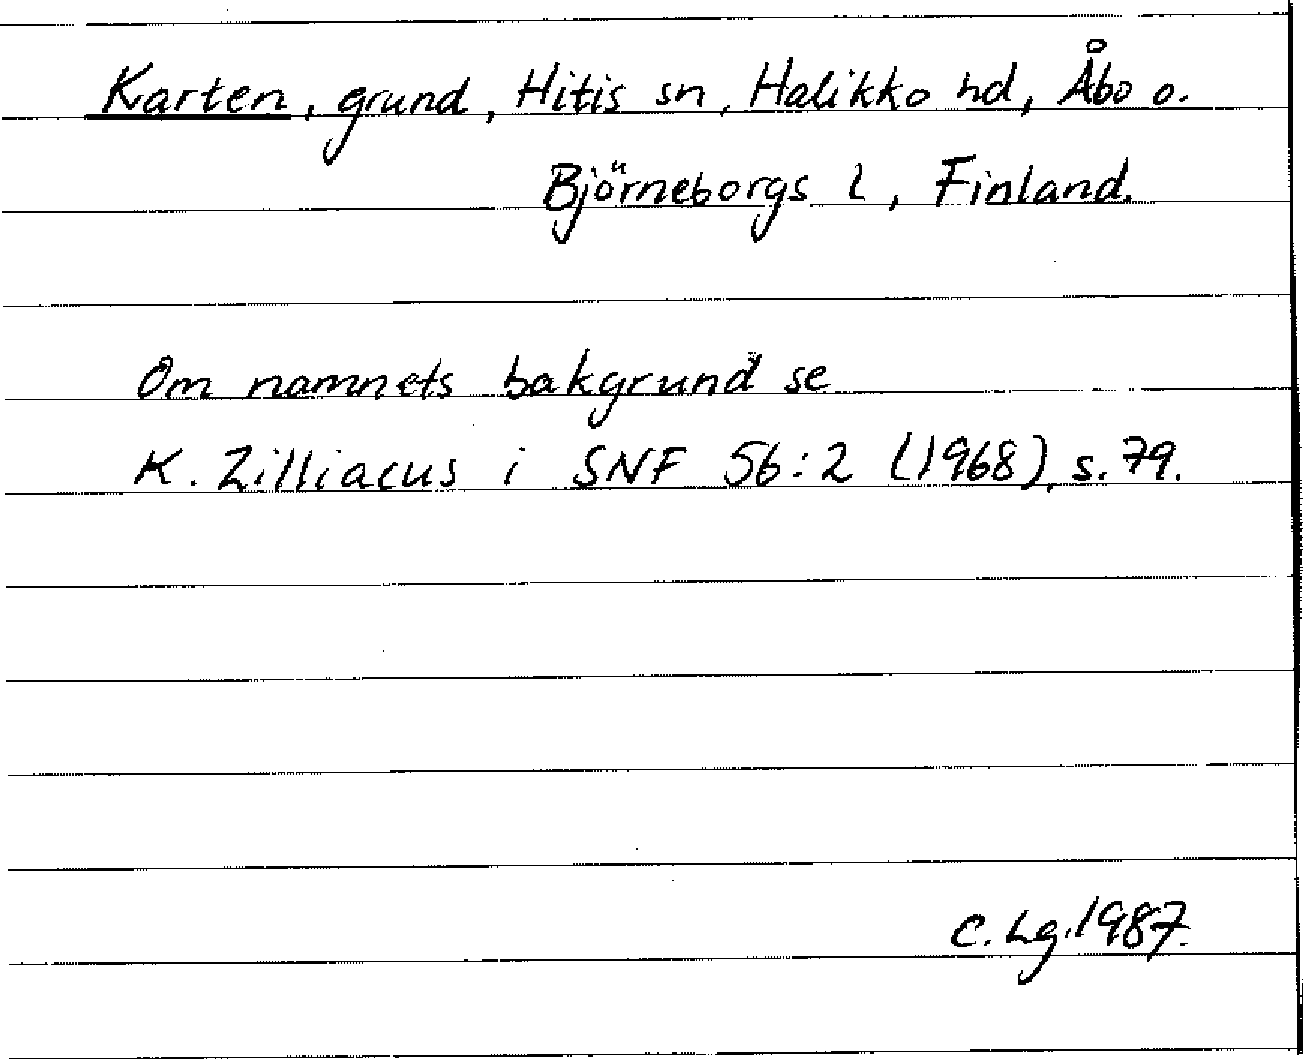 Karten, grund, Hitis sn, Halikko hd, Åbo o.
Björneborgs l, Finland.
Om namnets bakgrund se
K. Zilliacus i SNF 56:2 (1968), s. 79.
C. Lg. 1987.